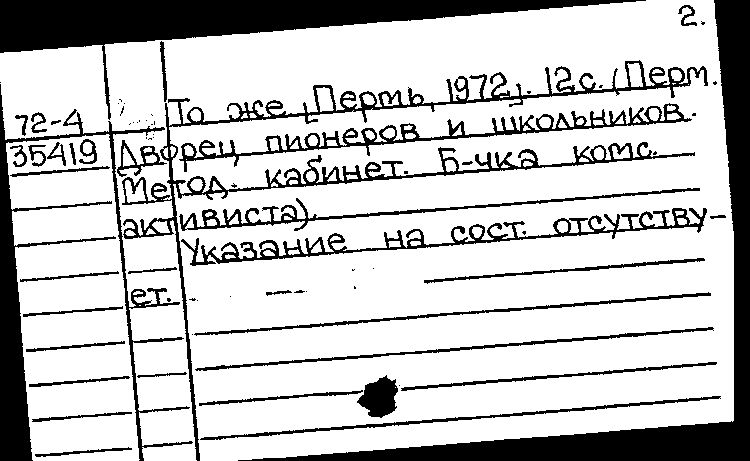 2.
То же. [Пермь, 1972]. 12 с. (Перм.
72-4
35419
Дворец пионеров и школьников.
Метод. кабинет. Б-чка комс.
активиста).
Указание на сост. отсутству-
ет.